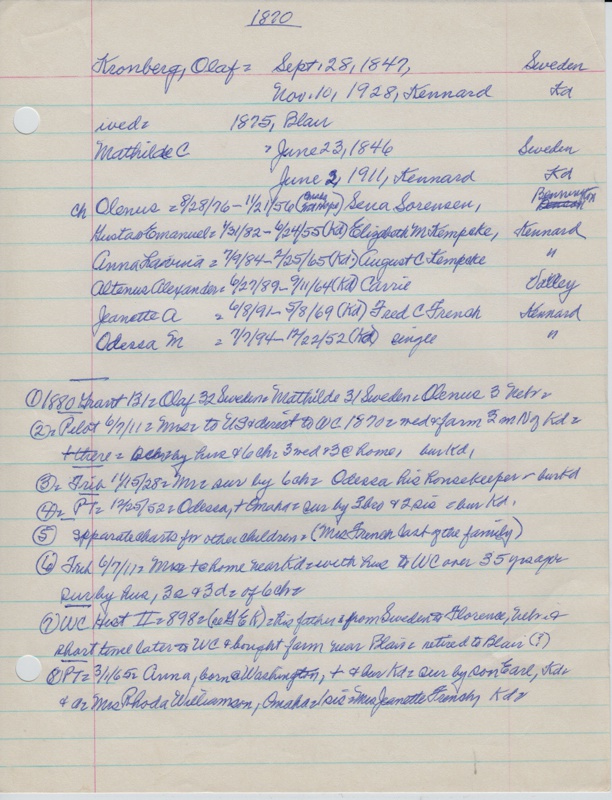 1870
Kronberg, Olaf = Sept. 28, 1847, Sweden
Nov. 10, 1928, Kennard Kd
wed = 1875, Blair
Mathilde C = June 23, 1846 Sweden
June 2, 1911, Kennard Kd
ch Olenus = 8/28/76 - 11/21/56 ( ) Sena Sorensen, Bennington
Gustav Emanuel = 1/31/82 - 6/24/55 (Kd) Elizabeth M Kempcke, Kennard
Anna = 7/9/84 - 2/25/65 (Kd) August C Kempcke "
Altenus Alexander = 6/27/89 - 9/11/64 (Kd) Carrie Valley
Jeanette A = 6/8/91 - 5/8/69 (Kd) Fred C French Kennard
Odessa M = 7/7/94 - 12/22/52 (Kd) single "
① 1880 Grant 131 = Olaf 32 Sweden = Mathilde 31 Sweden = Olenus 3 Nebr =
② = Pilot 6/7/11 = Mrs = to US & direct to WC 1870 = wed & farm 3 m N of Kd =
+ there = sur by hus & 6 ch = 3 wed & 3 @ home, bur Kd,
③ = 11/15/28 = Mr = sur by 6 ch = Odessa his housekeeper - bur Kd
④ = PT = 12/25/52 = Odessa, + Omaha = sur by 3 bro & 2 sis = bur Kd.
⑤ separate charts for other children = (Mrs French last of the family)
⑥ 6/7/11 = Mrs = + @ home near Kd = with hus to WC over 35 yrs ago =
sur by hus, 3 s & 3 d = of 6 ch =
⑦ WC Hist II = 898 = (G E K) = his father = from Sweden to Florence, Nebr &
short time later to WC & bought farm near Blair = retired to Blair (?)
⑧ PT = 3/1/65 = Anna, born @ Washington, + & bur Kd = sur by son Earl, Kd =
& d = Mrs Rhoda Williamson, Omaha = 1 sis = Mrs Jeanette French, Kd =